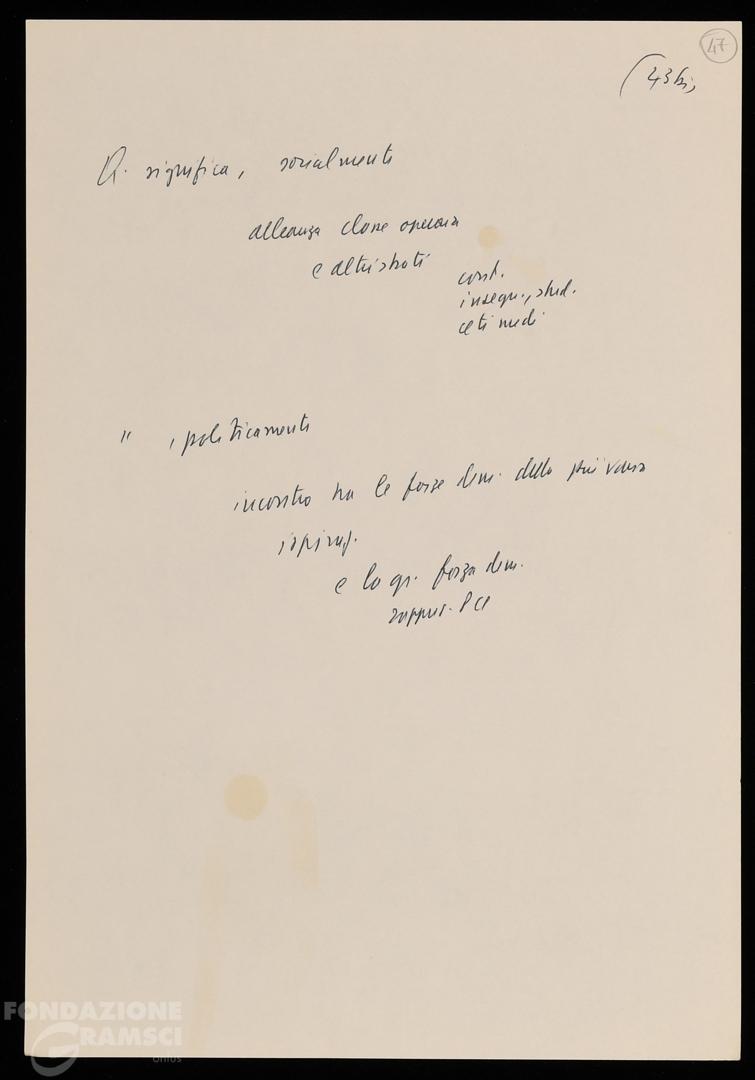 47
(43 bis
R. significa, socialmente
alleanza classe operaia
e altri strati
cont.
insegn., stud.
ceti medi
" , politicamente
incontro tra le forze dem. della più varia
ispiraz.
e la gr. forza dem.
rappres. PCI
FONDAZIONE
GRAMSCI
onlus